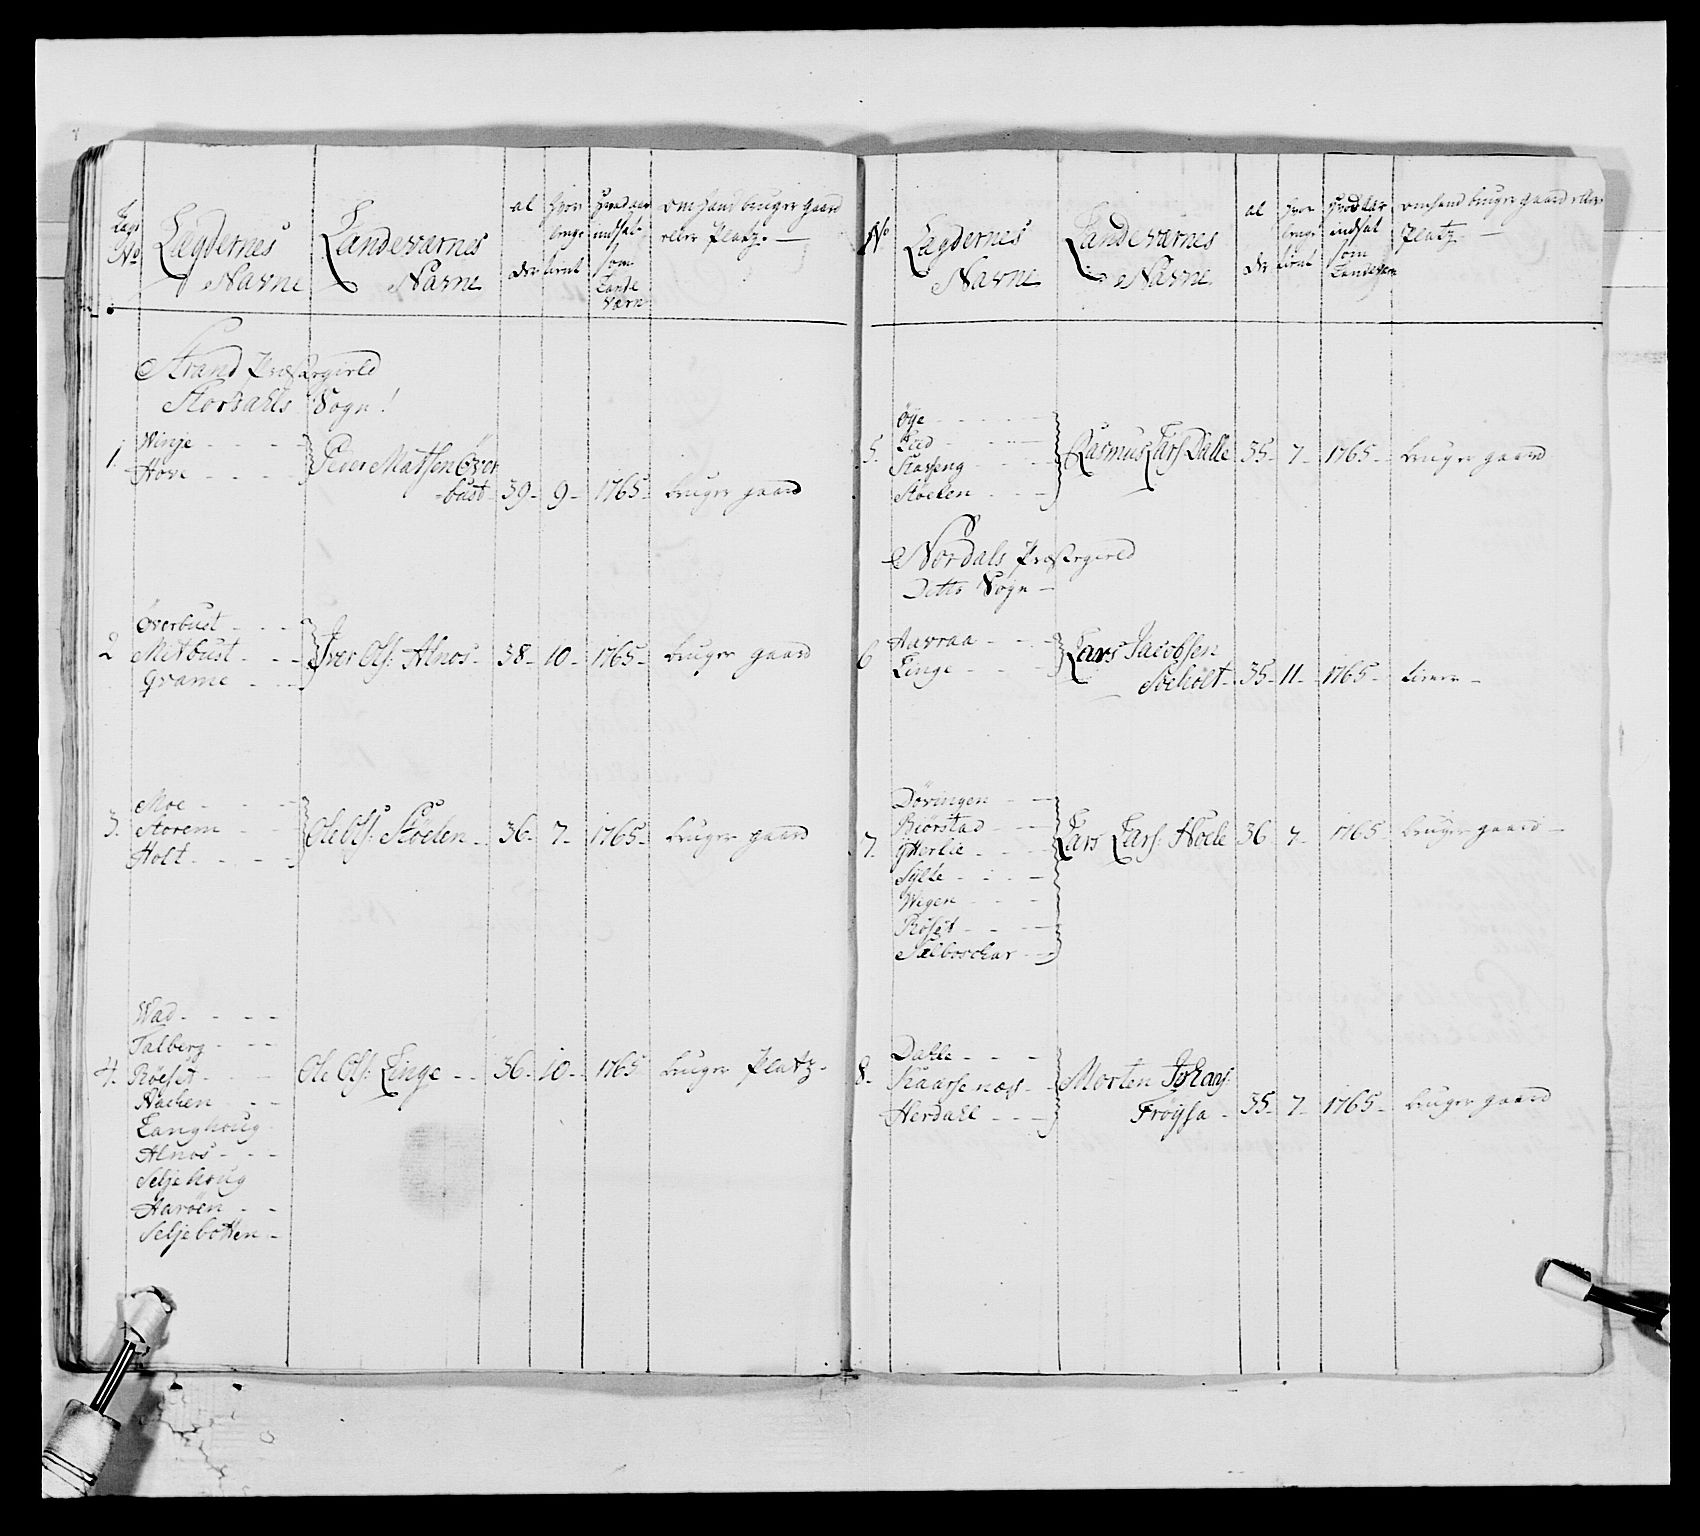 Legs No
Lægdernes Navne
Landeværnes Navne
al der
hvor længe tient
hvad aar indsat som Lande værn
om hand bruger gaard eller Platz. —
Strand Præstegield
Stordahls Sogn!
1.
Winje - - -
Hove - - - -
Peder Matsen Över
-bust - 39 - 9 - 1765 - bruger gaard
2
Överbust - - -
Mitbust - - -
Grame - - -
Iver Ols: Alnos - 38 - 10 - 1765 - bruger gaard
3.
Moe - - - -
Storem - - -
Holt - - - -
Ole Ols: Stoelen - 36 - 7 - 1765 - bruger gaard
4.
Wad - - - -
Talberg - - -
Röeset - - -
Hachen - - -
Langhoug -
Alnos - - -
Seljehoug
Haröen - -
Seljebotten -
Ole Ols: Linge - - 36 - 10 - 1765 bruger Platz -
No
Lægdernes Navne
Landeværnes Navne
al der
hvor længe tient
hvad aar indsat som Landeværn
om hand bruger gaard eller Platz. —
5.
Öye - - - -
Lied - - - -
Kaseng - - -
Stöelen - - -
Rasmus Lars: Dalle 35 - 7 - 1765 - bruger gaard
Nordals Præstegield
Ditto Sogn —
6
Aavraa - - -
Linge - - -
Lars Jacobsen
Söeholt - 35 - 11 - 1765 - tiener -
7.
Döving­en - -
Biörstad - -
Ytterlie - - -
Sylte - - - -
Wigen - - -
Röset - - -
Sælboschar - -
Lars Lars: Hoele 36 7 - 1765 bruger gaard -
8.
Dahle - - -
Kaarsenæs - -
Herdahl - - -
Morten Johans:
Fröysa - 35 - 7 - 1765 - bruger gaard